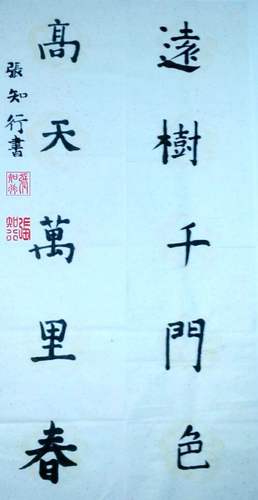 遠樹千門色
高天萬里春
張知行書